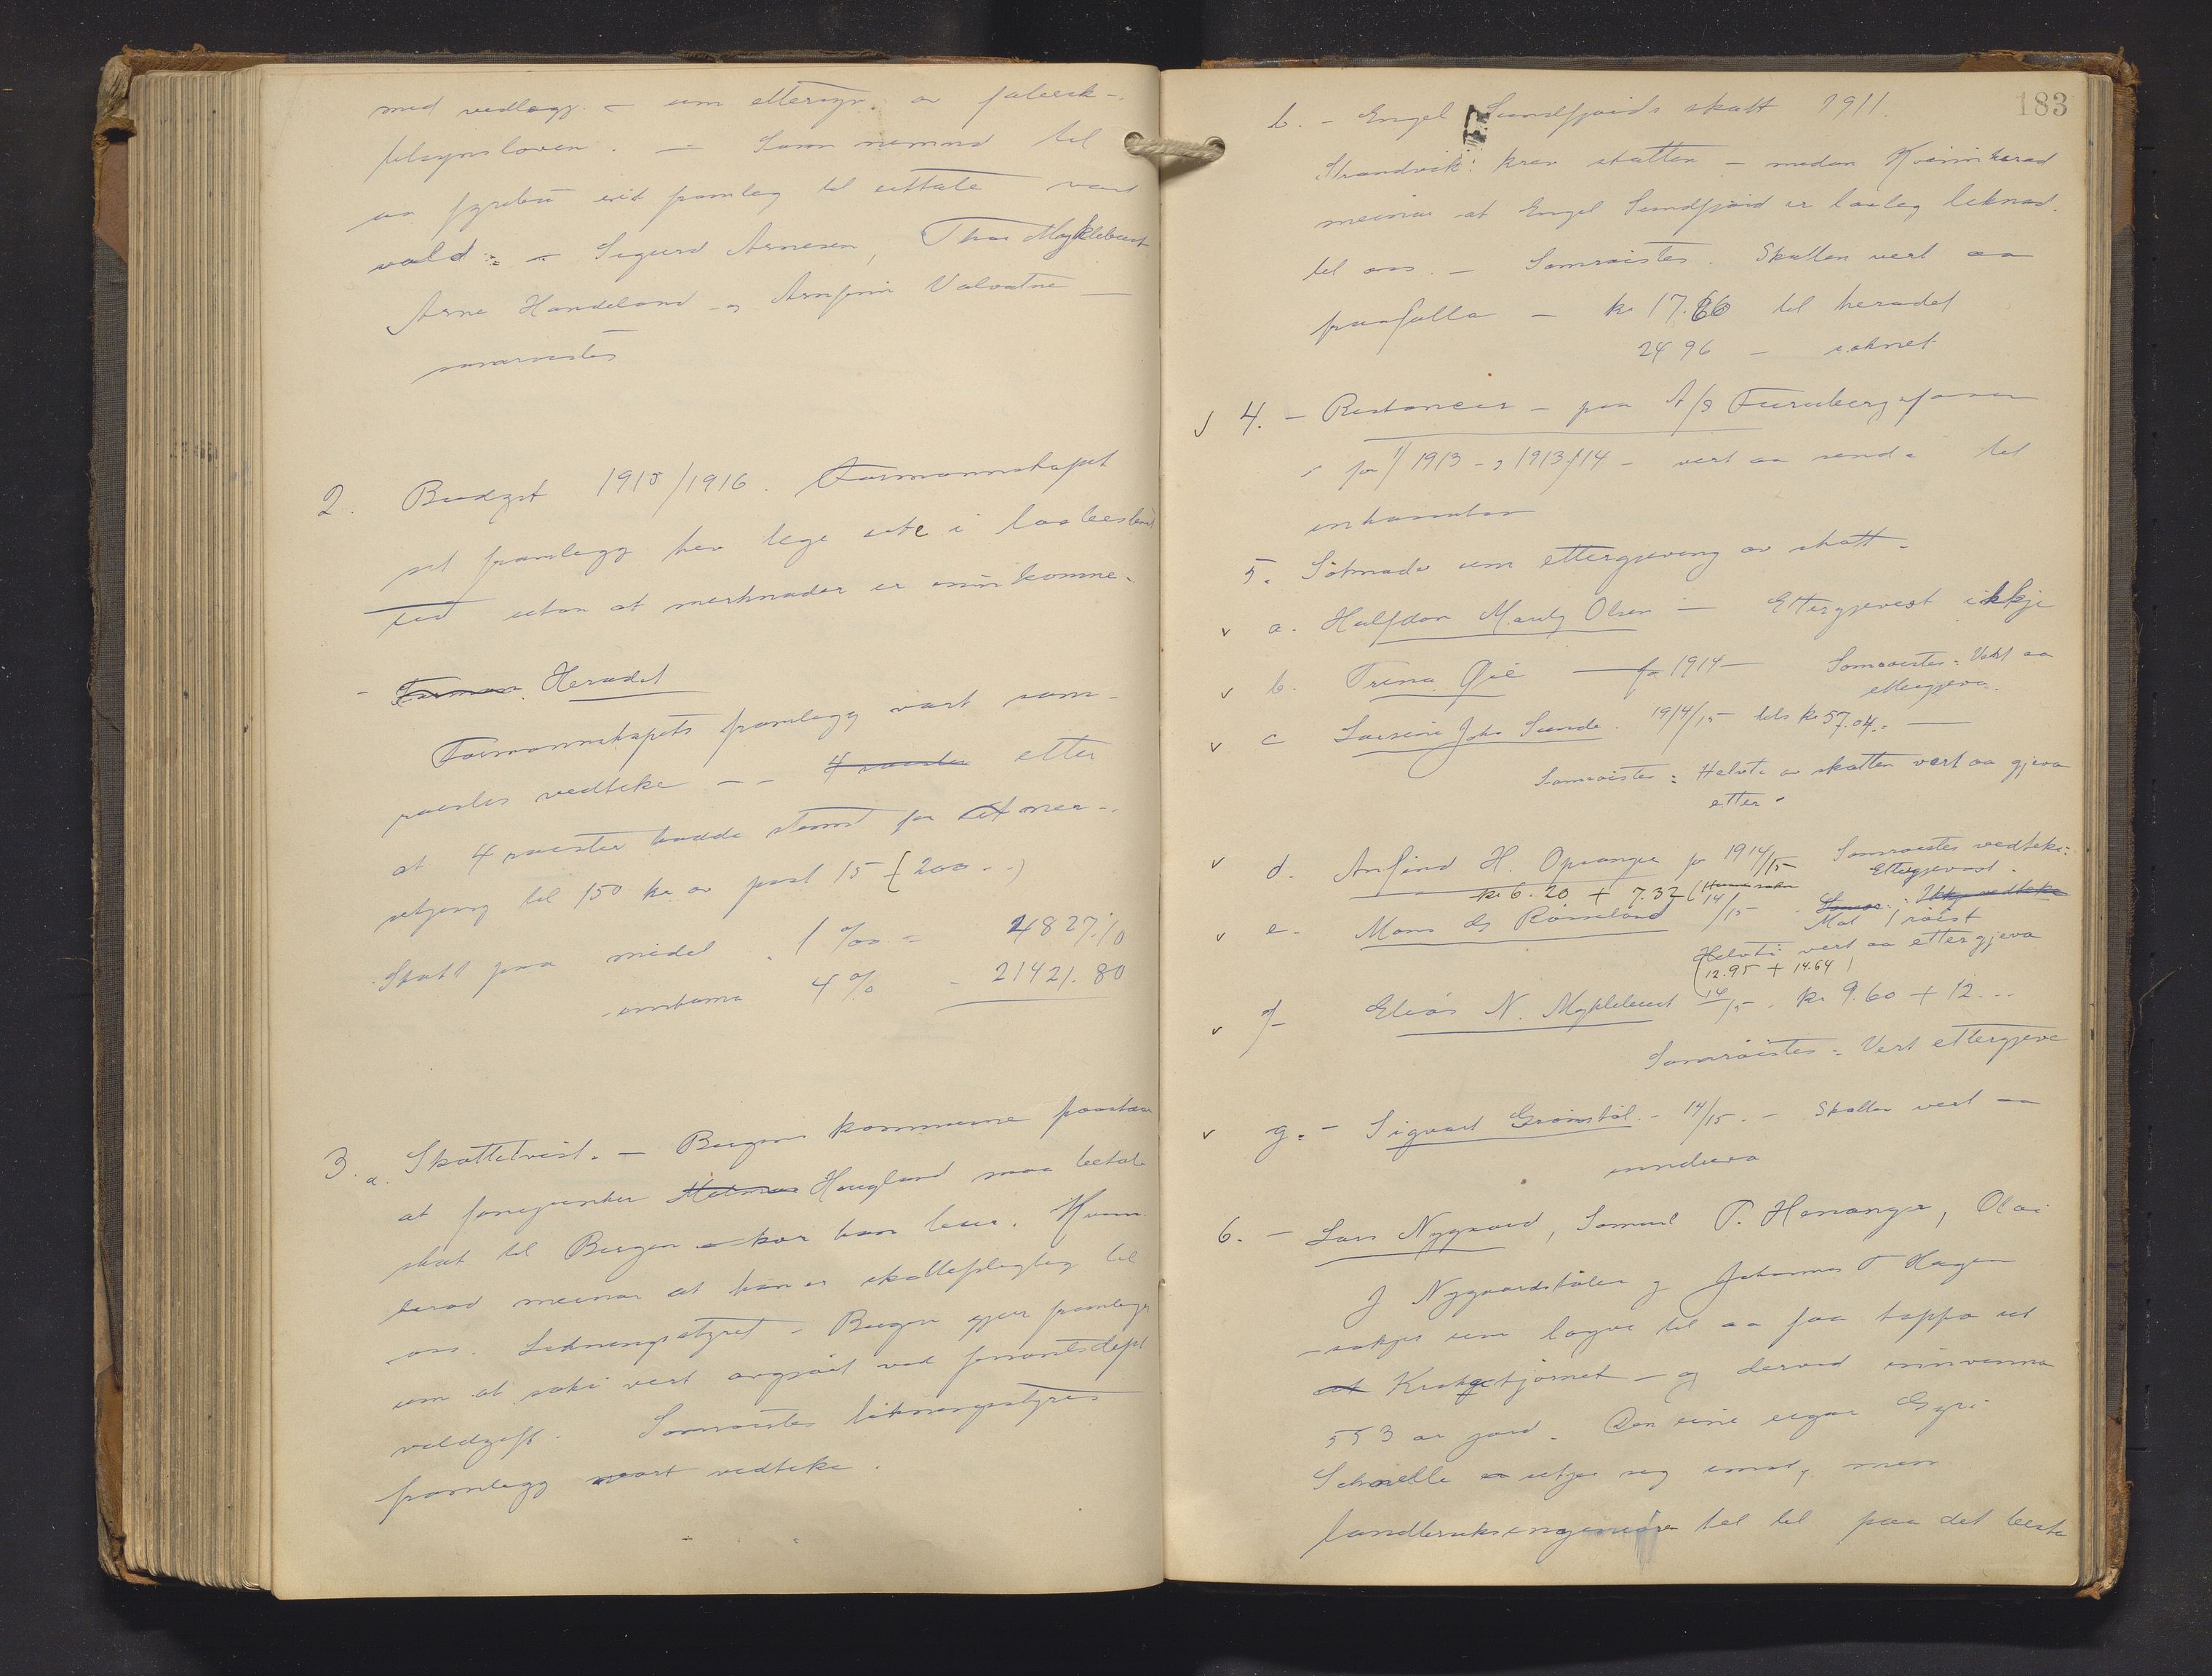 med vedlegg. — um ettersyn av fabrik-
tilsynsloven. — Som nemnd til
aa fyrebu eit framlag til uttale vart
vald: — Sigurd Arnesen, Thor Myklebust
Arne Handeland og Arnfinn Valvatne —
samrøistes
2. Budget 1915/1916. Formannskapet
sit framlegg hev lege ute i lovbestemt
tid utan at merknader er innkomne.
- Forman Heradet
Formannskapets framlegg vart sam-
røistes vedteke -- 4 røister etter
at 4 røister hadde stemt for at ner-
setjing til 150 kr av post 15 (200 --)
Skatt paa midel . 1 ‰ = 4827.10
- inntume 4 % - 21421.80
3. a. Skattetvist. — Bergens kommune paastaar
at foregjenter Hougland maa betale
skat til Bergen kor han beur. Kvinn-
herad meinar at han er skattepligtig til
oss. Likningsstyret i Bergen gjer framlegg
um at saki vert avgjort ved finantsdept
voldgift. Samrøistes likningsstyres
framlegg vart vedteke.
183
b. - Engel Sundfjords skatt 1911.
Strandvik: krev skatten — medan Kvinnherad
meinar at Engel Sundfjord er lovleg liknad
til oss. — Samrøistes. Skatten vert aa
fraafalla — kr 17.60 til heradet
24 96 — soknet
4. — Restancer — paa A/S Furubergsfoss
for 1/1 1913 - og 1913/14 — vert aa senda til
inkassator
5. Søknader um ettergjeving av skatt.
a. Halfdan Mauly Olsen — Ettergjevest ikkje
b. Trina Øie — for 1914 — Samrøistes: Vert aa
ettergjeva.
c Laurine Johs Sunde. 1914/15 tils kr 57.04.
Samrøistes: Halvte av skatten vert aa gjeva
etter.
d. Anfind H. Opsanger for 1914/15 Samrøistes vedteke:
Ettergjevast.
kr 6.20 + 7.32
e. Mons Os Rømeland 14/15 - Ikkje vedteke
Mot 1 røist
Halvti vert aa ettergjeva
(12.95 + 14.64)
f Elias N. Myklebust 14/15. kr 9.60 + 12...
Samrøistes: Vert ettergjeve
g. — Sigvart Grønstøl. - 14/15. — Skatten vert aa
inndriva
6. — Lars Nygaard, Samuel T. Hananger, Olai
J Nygaardstølen og Johannes T Hagen
- søkjer um løyve til aa faa tappa ut
at Krokgetjørnet — og derved innvinna
553 ar jord. Den eine eigar Gyri
Schnelle er setja seg imot, men
landbruksingeniøren tel til paa det beste